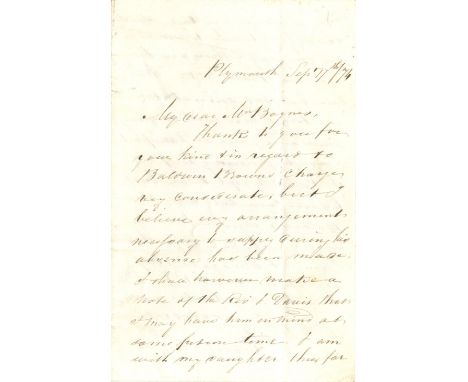 Plymouth Sep 7th/76
My dear Mr Baynes,
Thanks to you for
your kind in regard to
Baldwin Browns charge
very considerate, but I
believe every arrangement
necessary to supply during his
absence has been made.
I shall however make a
note of the Rev J Davis that
I may have him in mind at
some future time. I am
with my daughter thus far